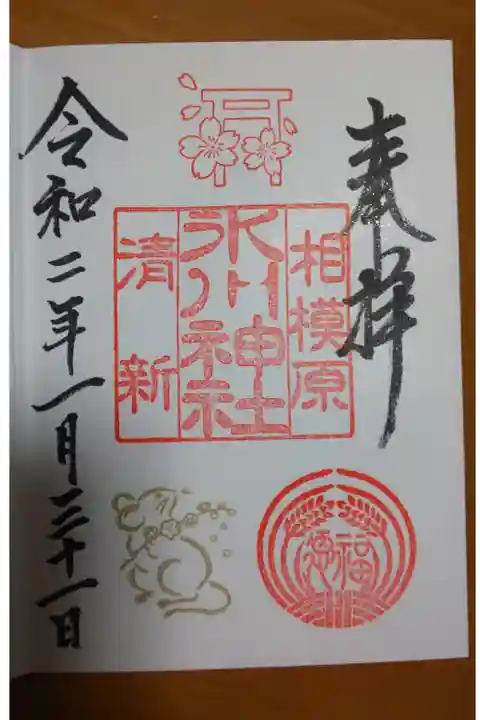 奉拝
相模原
氷川神社
清新
福徳
令和二年一月三十一日